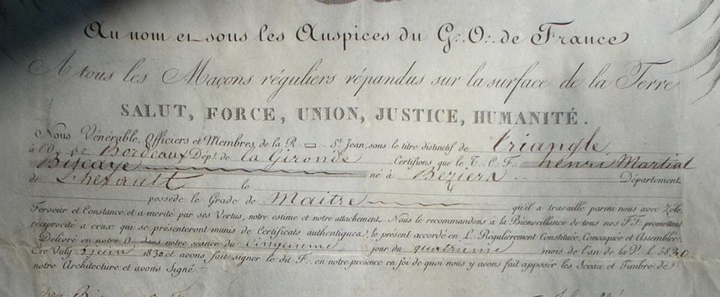 Au nom et sous les Auspices du G∴ O∴ de France
A tous les Maçons réguliers répandus sur la surface de la Terre
SALUT, FORCE, UNION, JUSTICE, HUMANITÉ.
Nous Vénérable, Officiers et Membres, de la R. ▭ St Jean, sous le titre distinctif de triangle
à l'O. de Bordeaux Dépt. de la Gironde Certifions que le T. C. F. henri Martial
né à Beziers Département
de L'herault le
possede le Grade de Maitre qu'il a travaillé parmi nous avec Zèle
Ferveur et Constance et a merité par ses Vertus, notre estime et notre attachement. Nous le recommandons à la Bienveillance de tous nos FF. promettant
réciprocité à ceux qui se présenteront munis de Certificats authentiques. le présent accordé en L. Régulierement Constituée, Convoquée et Assemblée
Délivré en notre O. dans notre séance du Cinquieme jour du quatrieme mois de l'an de la V. L. 5830
Ere Vulg. 5 juin 1830 et avons fait signer le dit F. en notre présence en foi de quoi nous y avons fait apposer les Sceau et Timbre de
notre Architecture et avons Signé.